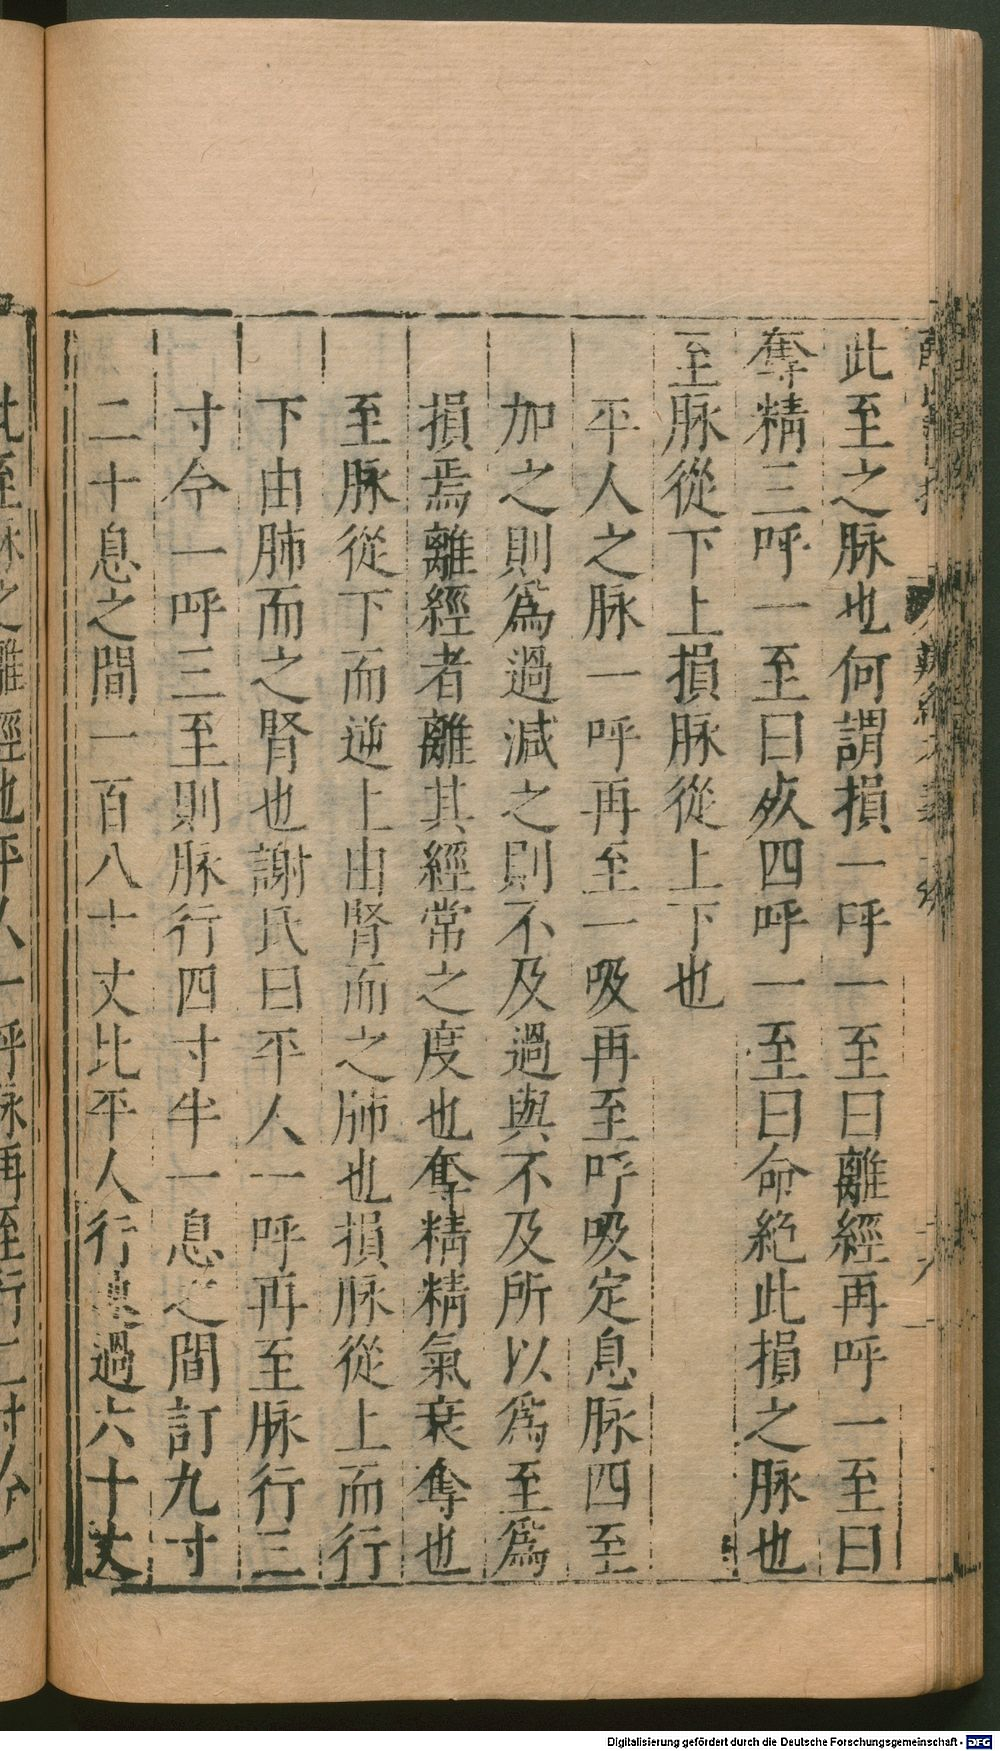 此至之脉也何謂損一呼一至曰離經再呼一至曰
奪精三呼一至曰死四呼一至曰命絶此損之脉也
至脉從下上損脉從上下也
平人之脉一呼再至一吸再至呼吸定息脉四至
加之則爲過減之則不及過與不及所以爲至爲
損焉離經者離其經常之度也奪精精氣衰奪也
至脉從下而逆上由腎而之肺也損脉從上而行
下由肺而之腎也謝氏曰平人一呼再至脉行三
寸今一呼三至則脉行四寸半一息之間訂九寸
二十息之間一百八十丈比平人行速過六十丈
此至脉之離經也平人一呼脉再至行三寸今一
Digitalisierung gefördert durch die Deutsche Forschungsgemeinschaft - DFG